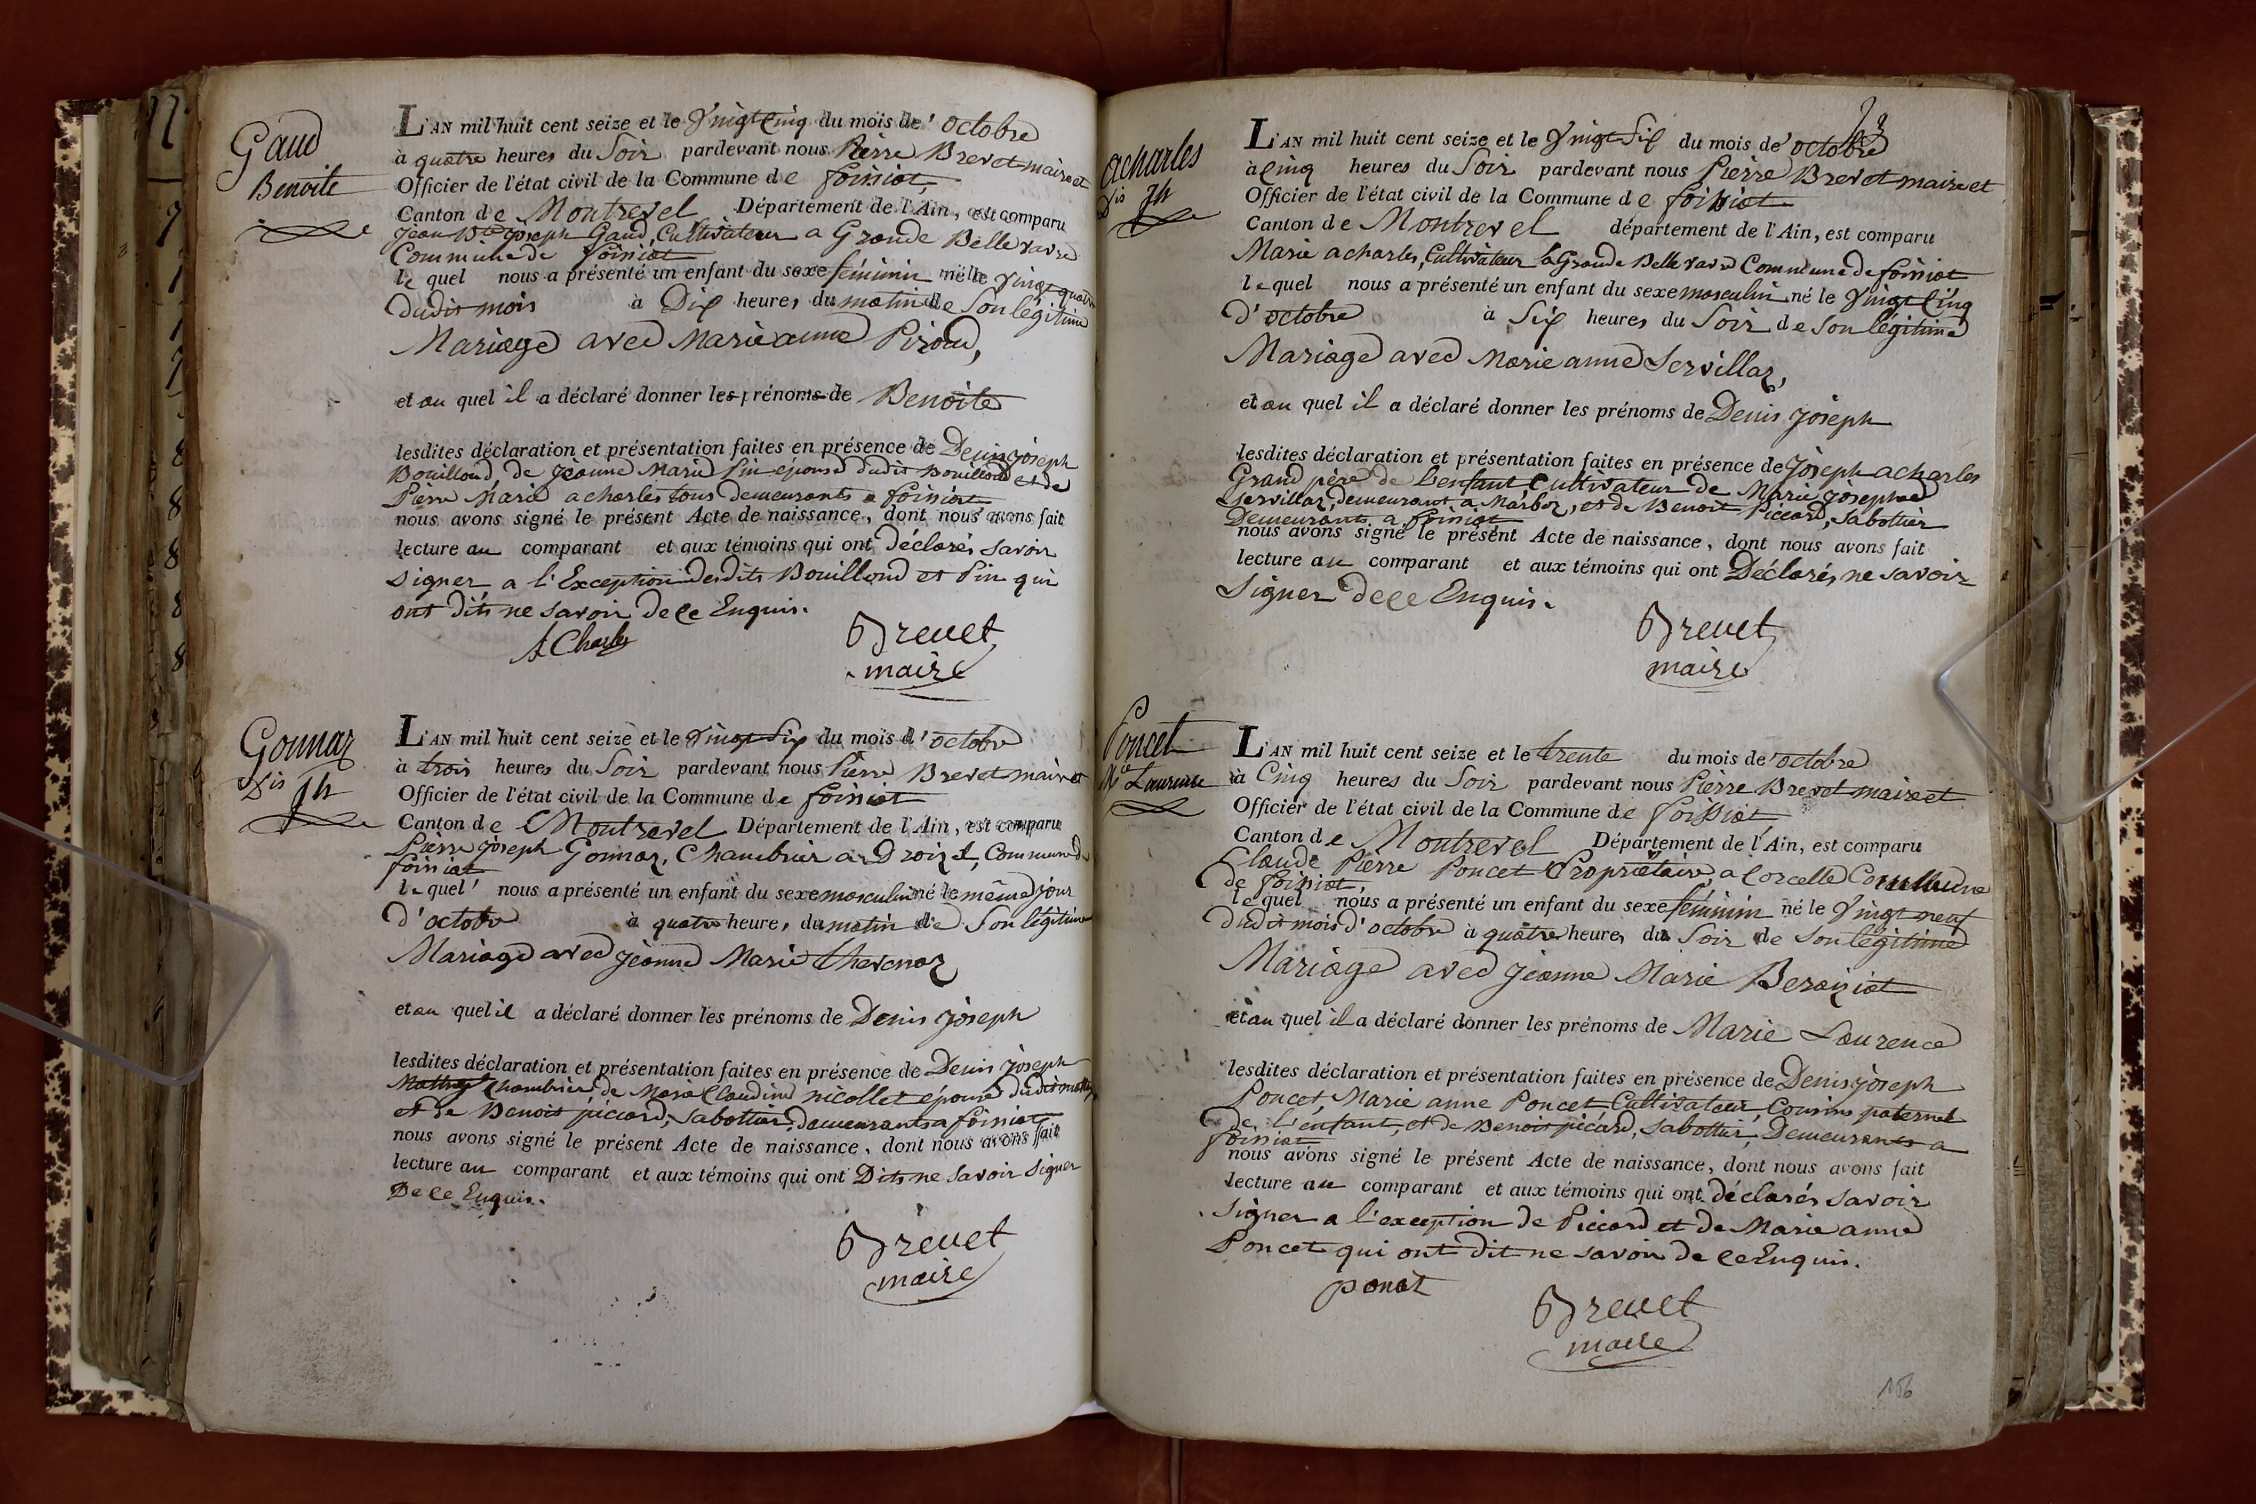 Gaud
Benoite
L'AN mil huit cent seize et le Vingt Cinq du mois de octobre
à quatre heures du Soir pardevant nous Pierre Brevet maire et
Officier de l'état civil de la Commune de foissiat
Canton de Montrevel Département de l'Ain, est comparu
Jean Bte Joseph Gaud, Cultivateur a Grande Bellevavre
Commune de foissiat
le quel nous a présenté un enfant du sexe féminin née le Vingt quatre
dudit mois à Dix heures du matin de Son légitime
Mariage avec Marie anne Piroud,
et au quel il a déclaré donner les prénoms de Benoite
lesdites déclaration et présentation faites en présence de Denis joseph
Bouilloud, de Jeanne Marie Pin épouse dudit Bouilloud et de
Pierre Marie acharles tous demeurants a foissiat
nous avons signé le présent Acte de naissance, dont nous avons fait
lecture au comparant et aux témoins qui ont Déclarés savoir
signer a l'Exception desdits Bouilloud et Pin qui
ont dits ne savoir de ce Enquis.
A Charles
Brevet
maire
Gonnaz
Dis Jh
L'AN mil huit cent seize et le Vingt Six du mois d'octobre
à trois heures du Soir pardevant nous Pierre Brevet maire et
Officier de l'état civil de la Commune de foissiat
Canton de Montrevel Département de l'Ain, est comparu
Pierre joseph Gonnaz, Chambrier a Commune de
foissiat
le quel nous a présenté un enfant du sexe masculin né le même jour
d'octobre à quatre heures du matin de Son légitime
Mariage avec jeanne Marie thevenaz
et au quel il a déclaré donner les prénoms de Denis joseph
lesdites déclaration et présentation faites en présence de Denis joseph
Chambrier, de Marie Claudine nicollet épouse dudit
et de Benoit piccard, Sabottier, demeurants a foissiat
nous avons signé le présent Acte de naissance, dont nous avons fait
lecture au comparant et aux témoins qui ont Dits ne savoir signer
De ce Enquis.
Brevet
maire
acharles
Dis Jh
L'AN mil huit cent seize et le Vingt Six du mois de octobre
à Cinq heures du Soir pardevant nous Pierre Brevet maire et
Officier de l'état civil de la Commune de foissiat
Canton de Montrevel département de l'Ain, est comparu
Marie acharles, Cultivateur a Grande Bellevavre Commune de foissiat
le quel nous a présenté un enfant du sexe masculin né le Vingt Cinq
d'octobre à Six heures du Soir de Son légitime
Mariage avec Marie anne Servillaz,
et au quel il a déclaré donner les prénoms de Denis joseph
lesdites déclaration et présentation faites en présence de joseph acharles
Grand père de l'enfant Cultivateur de Marie josephe
Servillaz, demeurant a Marboz, et de Benoit Piccard, Sabottier
Demeurants a foissiat
nous avons signé le présent Acte de naissance, dont nous avons fait
lecture au comparant et aux témoins qui ont Déclarés ne savoir
Signer de ce Enquis.
Brevet
maire
Poncet
Mie Laurence
L'AN mil huit cent seize et le trente du mois de octobre
à Cinq heures du Soir pardevant nous Pierre Brevet maire et
Officier de l'état civil de la Commune de foissiat
Canton de Montrevel Département de l'Ain, est comparu
Claude Pierre Poncet Propriétaire a Corcelle Commune
de foissiat,
le quel nous a présenté un enfant du sexe féminin né le Vingt neuf
dudit mois d'octobre à quatre heures du Soir de Son légitime
Mariage avec jeanne Marie Beroziat
et au quel il a déclaré donner les prénoms de Marie Laurence
lesdites déclaration et présentation faites en présence de Denis joseph
Poncet, Marie anne Poncet Cultivateur, Cousins paternel
de l'enfant, et de Benoit picard, Sabottier, Demeurants a
foissiat
nous avons signé le présent Acte de naissance, dont nous avons fait
lecture au comparant et aux témoins qui ont déclarés savoir
signer a l'exception de Piccard et de Marie anne
Poncet qui ont dit ne savoir de ce Enquis.
ponct
Brevet
maire
156